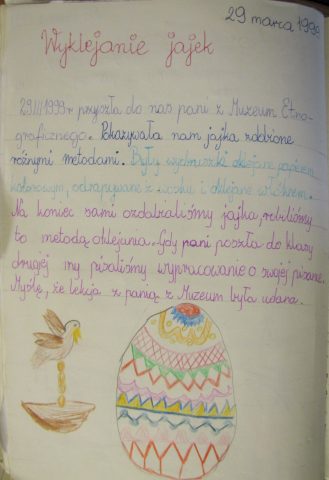 29 marca 1999
Wyklejanie jajek
29 III 1999r przyszła do nas pani z Muzeum Etno-
graficznego. Pokazywała nam jajka zdobione
różnymi metodami. Były wydmuszki oklejane papierem
kolorowym, odrapywane z wosku i oklejane włóknem.
Na koniec sami ozdabialiśmy jajka, robiliśmy
to metodą oklejania. Gdy pani poszła do klasy
drugiej my pisaliśmy wypracowanie o swojej pisance.
Myślę, że lekcja z panią z Muzeum była udana.